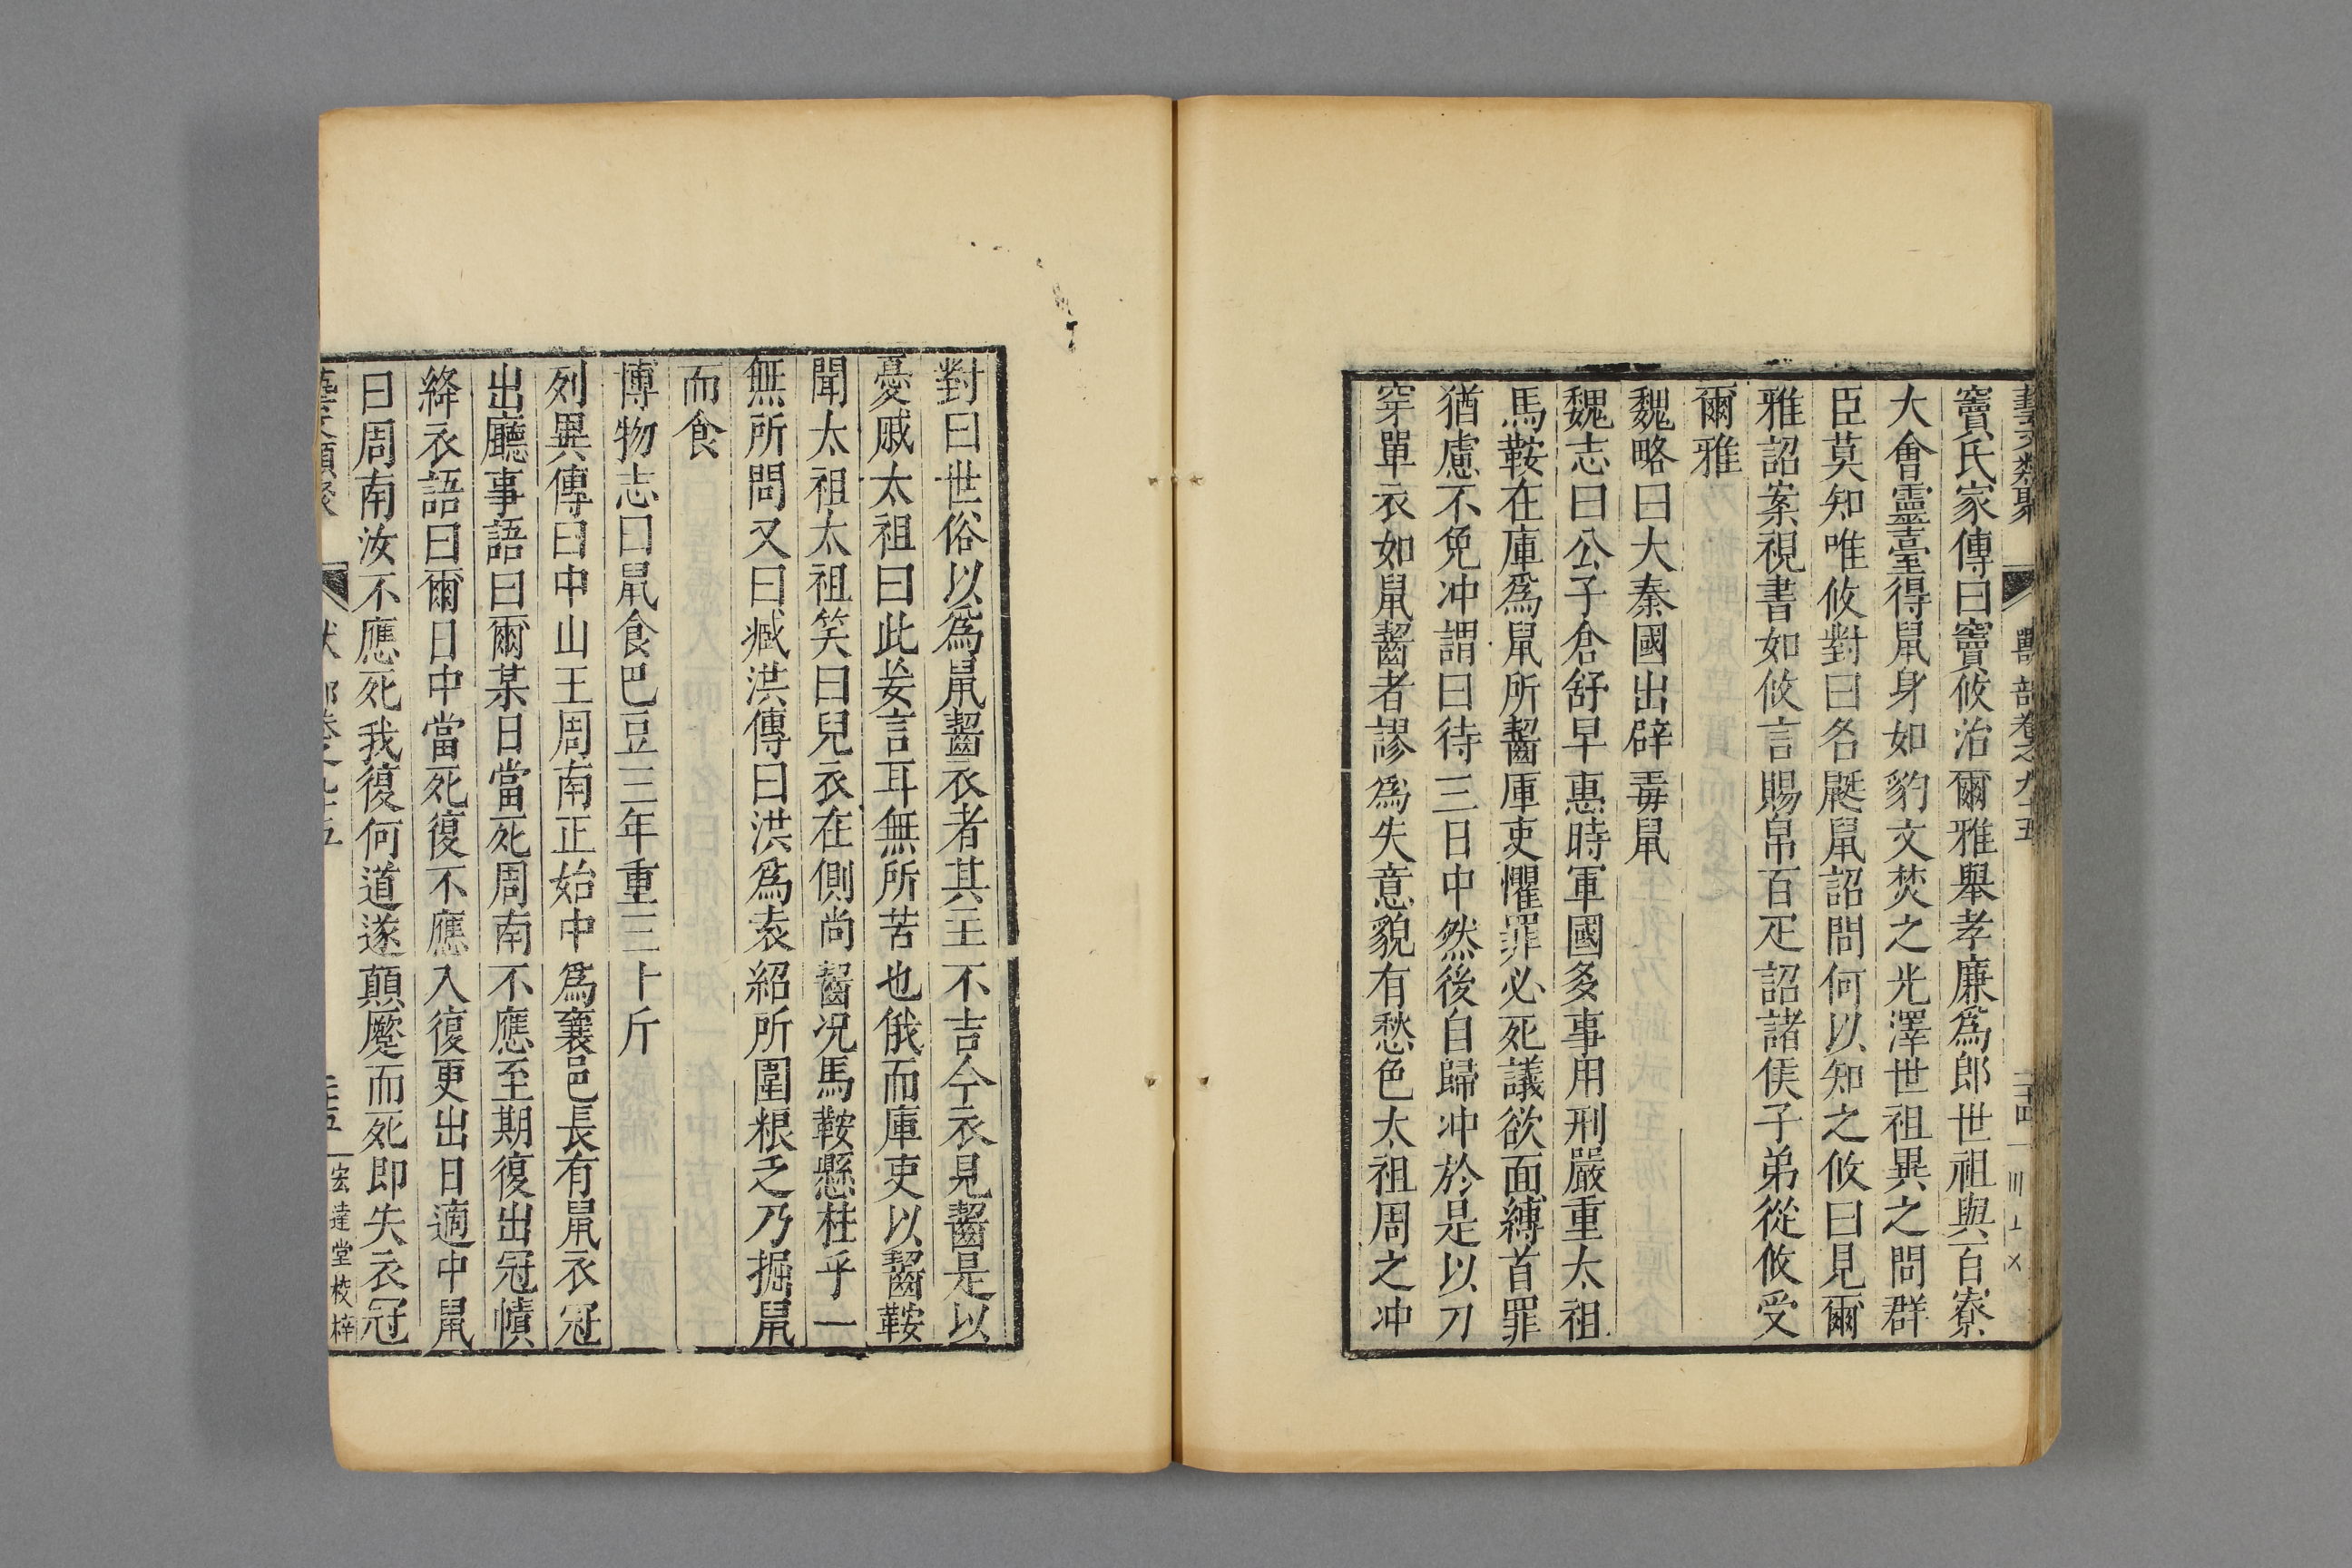 藝文類聚 獸部卷之九十五 三十四
竇氏家傳曰竇攸治爾雅舉孝廉爲郎世祖與百寮
大會靈臺得鼠身如豹文熒之光澤世祖異之問群
臣莫知唯攸對曰名鼮鼠詔問何以知之攸曰見爾
雅詔案視書如攸言賜帛百疋詔諸侯子弟從攸受
爾雅
魏略曰大秦國出辟毒鼠
魏志曰公子倉舒早惠時軍國多事用刑嚴重太祖
馬鞍在庫爲鼠所齧庫吏懼罪必死議欲面縛首罪
猶慮不免沖謂曰待三日中然後自歸沖於是以刀
穿單衣如鼠齧者謬爲失意貌有愁色太祖周之沖
對曰世俗以爲鼠齧衣者其主不吉今衣見齧是以
憂戚太祖曰此妄言耳無所苦也俄而庫吏以齧鞍
聞太祖太祖笑曰兒衣在側尚齧况馬鞍懸柱乎一
無所問又曰臧洪傳曰洪爲袁紹所圍粮乏乃掘鼠
而食
博物志曰鼠食巴豆三年重三十斤
列異傳曰中山王周南正始中爲襄邑長有鼠衣冠
出廳事語曰爾某日當死周南不應至期復出冠幘
絳衣語曰爾日中當死復不應入復更出日適中鼠
曰周南汝不應死我復何道遂顛蹷而死即失衣冠
藝文類聚 部卷之九十五 三十五 宏達堂校梓